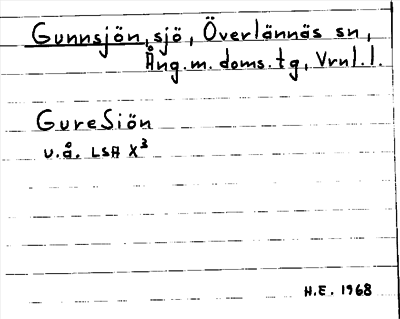 Gunnsjön, sjö, Överlännäs sn,
Ång.m. doms.tg, Vrnl.l.
GureSiön
u.å. LSA X³
H.E. 1968